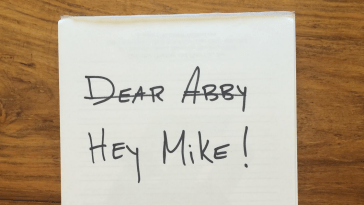 DEAR ABBY
HEY MIKE!